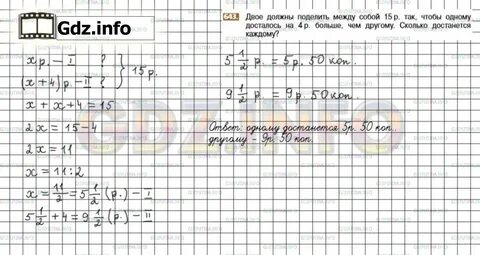 Gdz.info
643. Двое должны поделить между собой 15 р. так, чтобы одному
досталось на 4 р. больше, чем другому. Сколько достанется
каждому?
x р. – I ?
(x + 4) р. – II ? } 15 р.
x + x + 4 = 15
2x = 15 – 4
2x = 11
x = 11 : 2
x = 11/2 = 5 1/2 (р.) – I
5 1/2 + 4 = 9 1/2 (р.) – II
5 1/2 р. = 5 р. 50 коп.
9 1/2 р. = 9 р. 50 коп.
Ответ: одному достанется 5р. 50 коп.,
другому – 9р. 50 коп.
GDZ.INFO